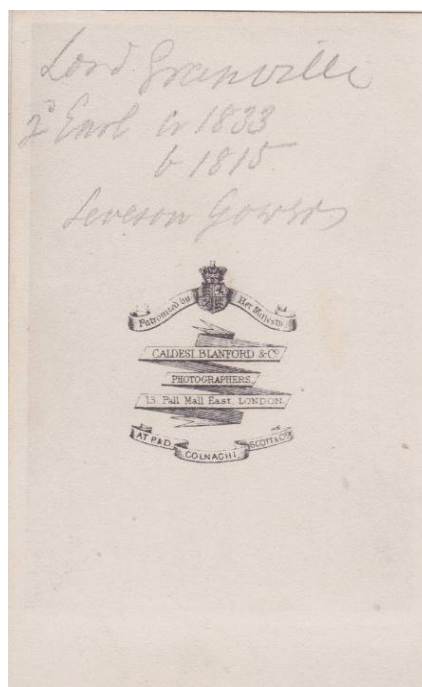 Lord Granville
2d Earl cr 1833
b 1815
Leveson Gowers
Patronised by Her Majesty
CALDESI BLANFORD & Co
PHOTOGRAPHERS,
13, Pall Mall East, LONDON.
AT P&D. COLNAGHI, SCOTT & Co